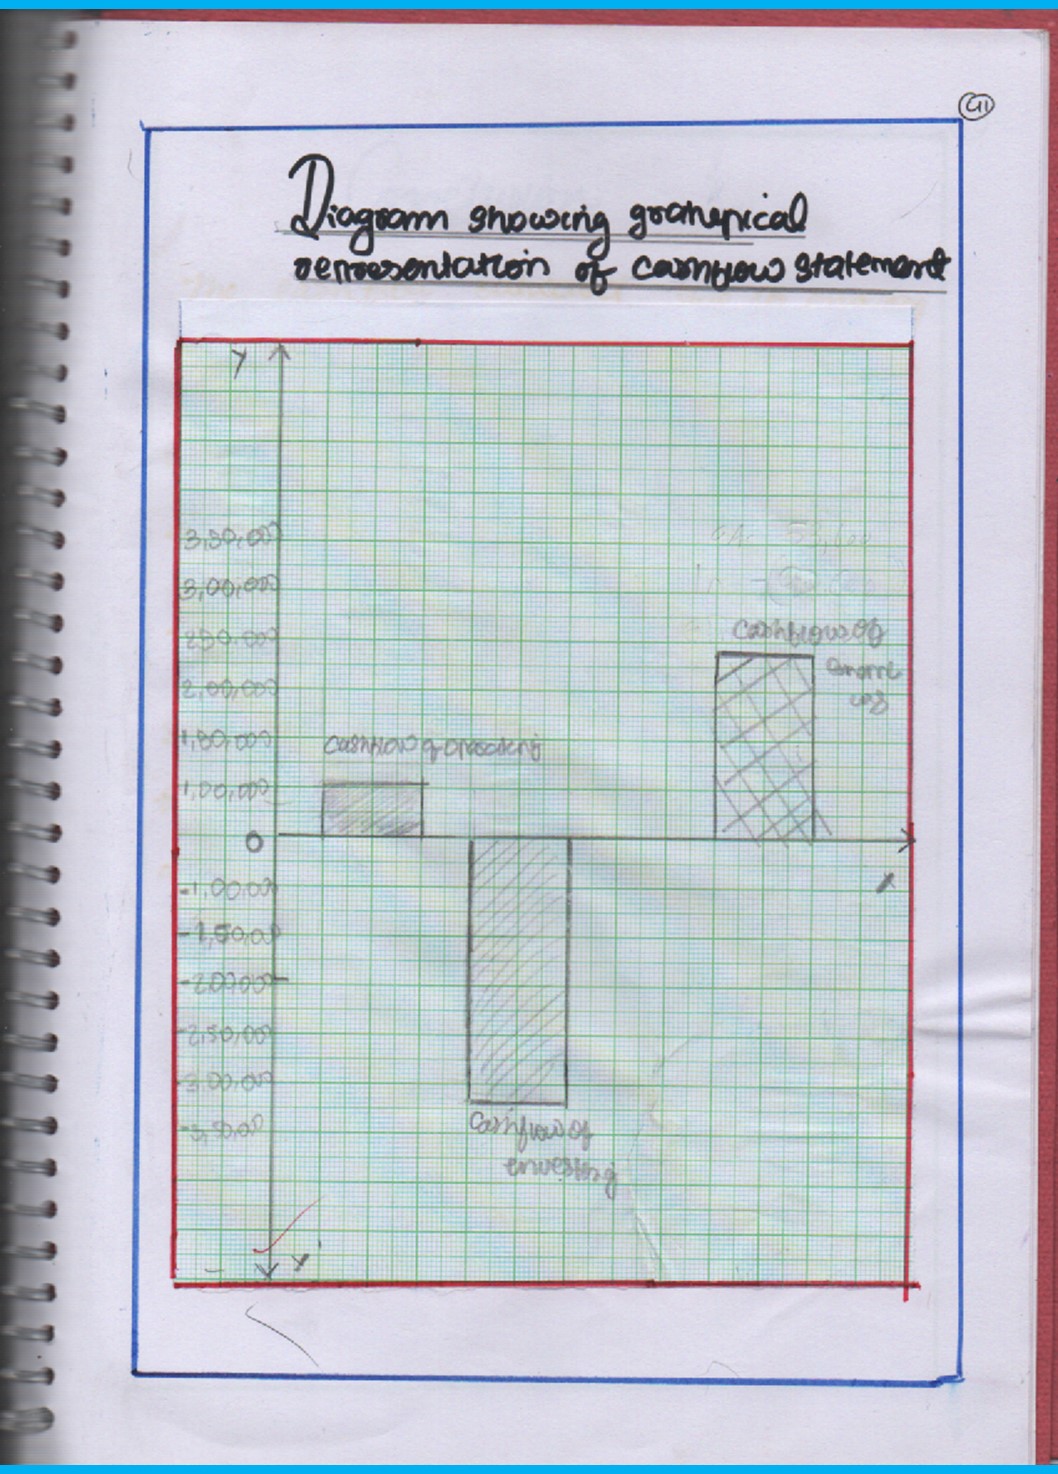 41
Diagram showing grahepical
representation of cashflow statement
Y
3,50,000
3,00,000
250,000
2,00,000
1,50,000
1,00,000
0
-1,00,00
-1,50,00
-2,00,00
-2,50,00
-3,00,00
-3,50,00
cashflow of
cashflow
X
Cashflow of
envesting
Y'